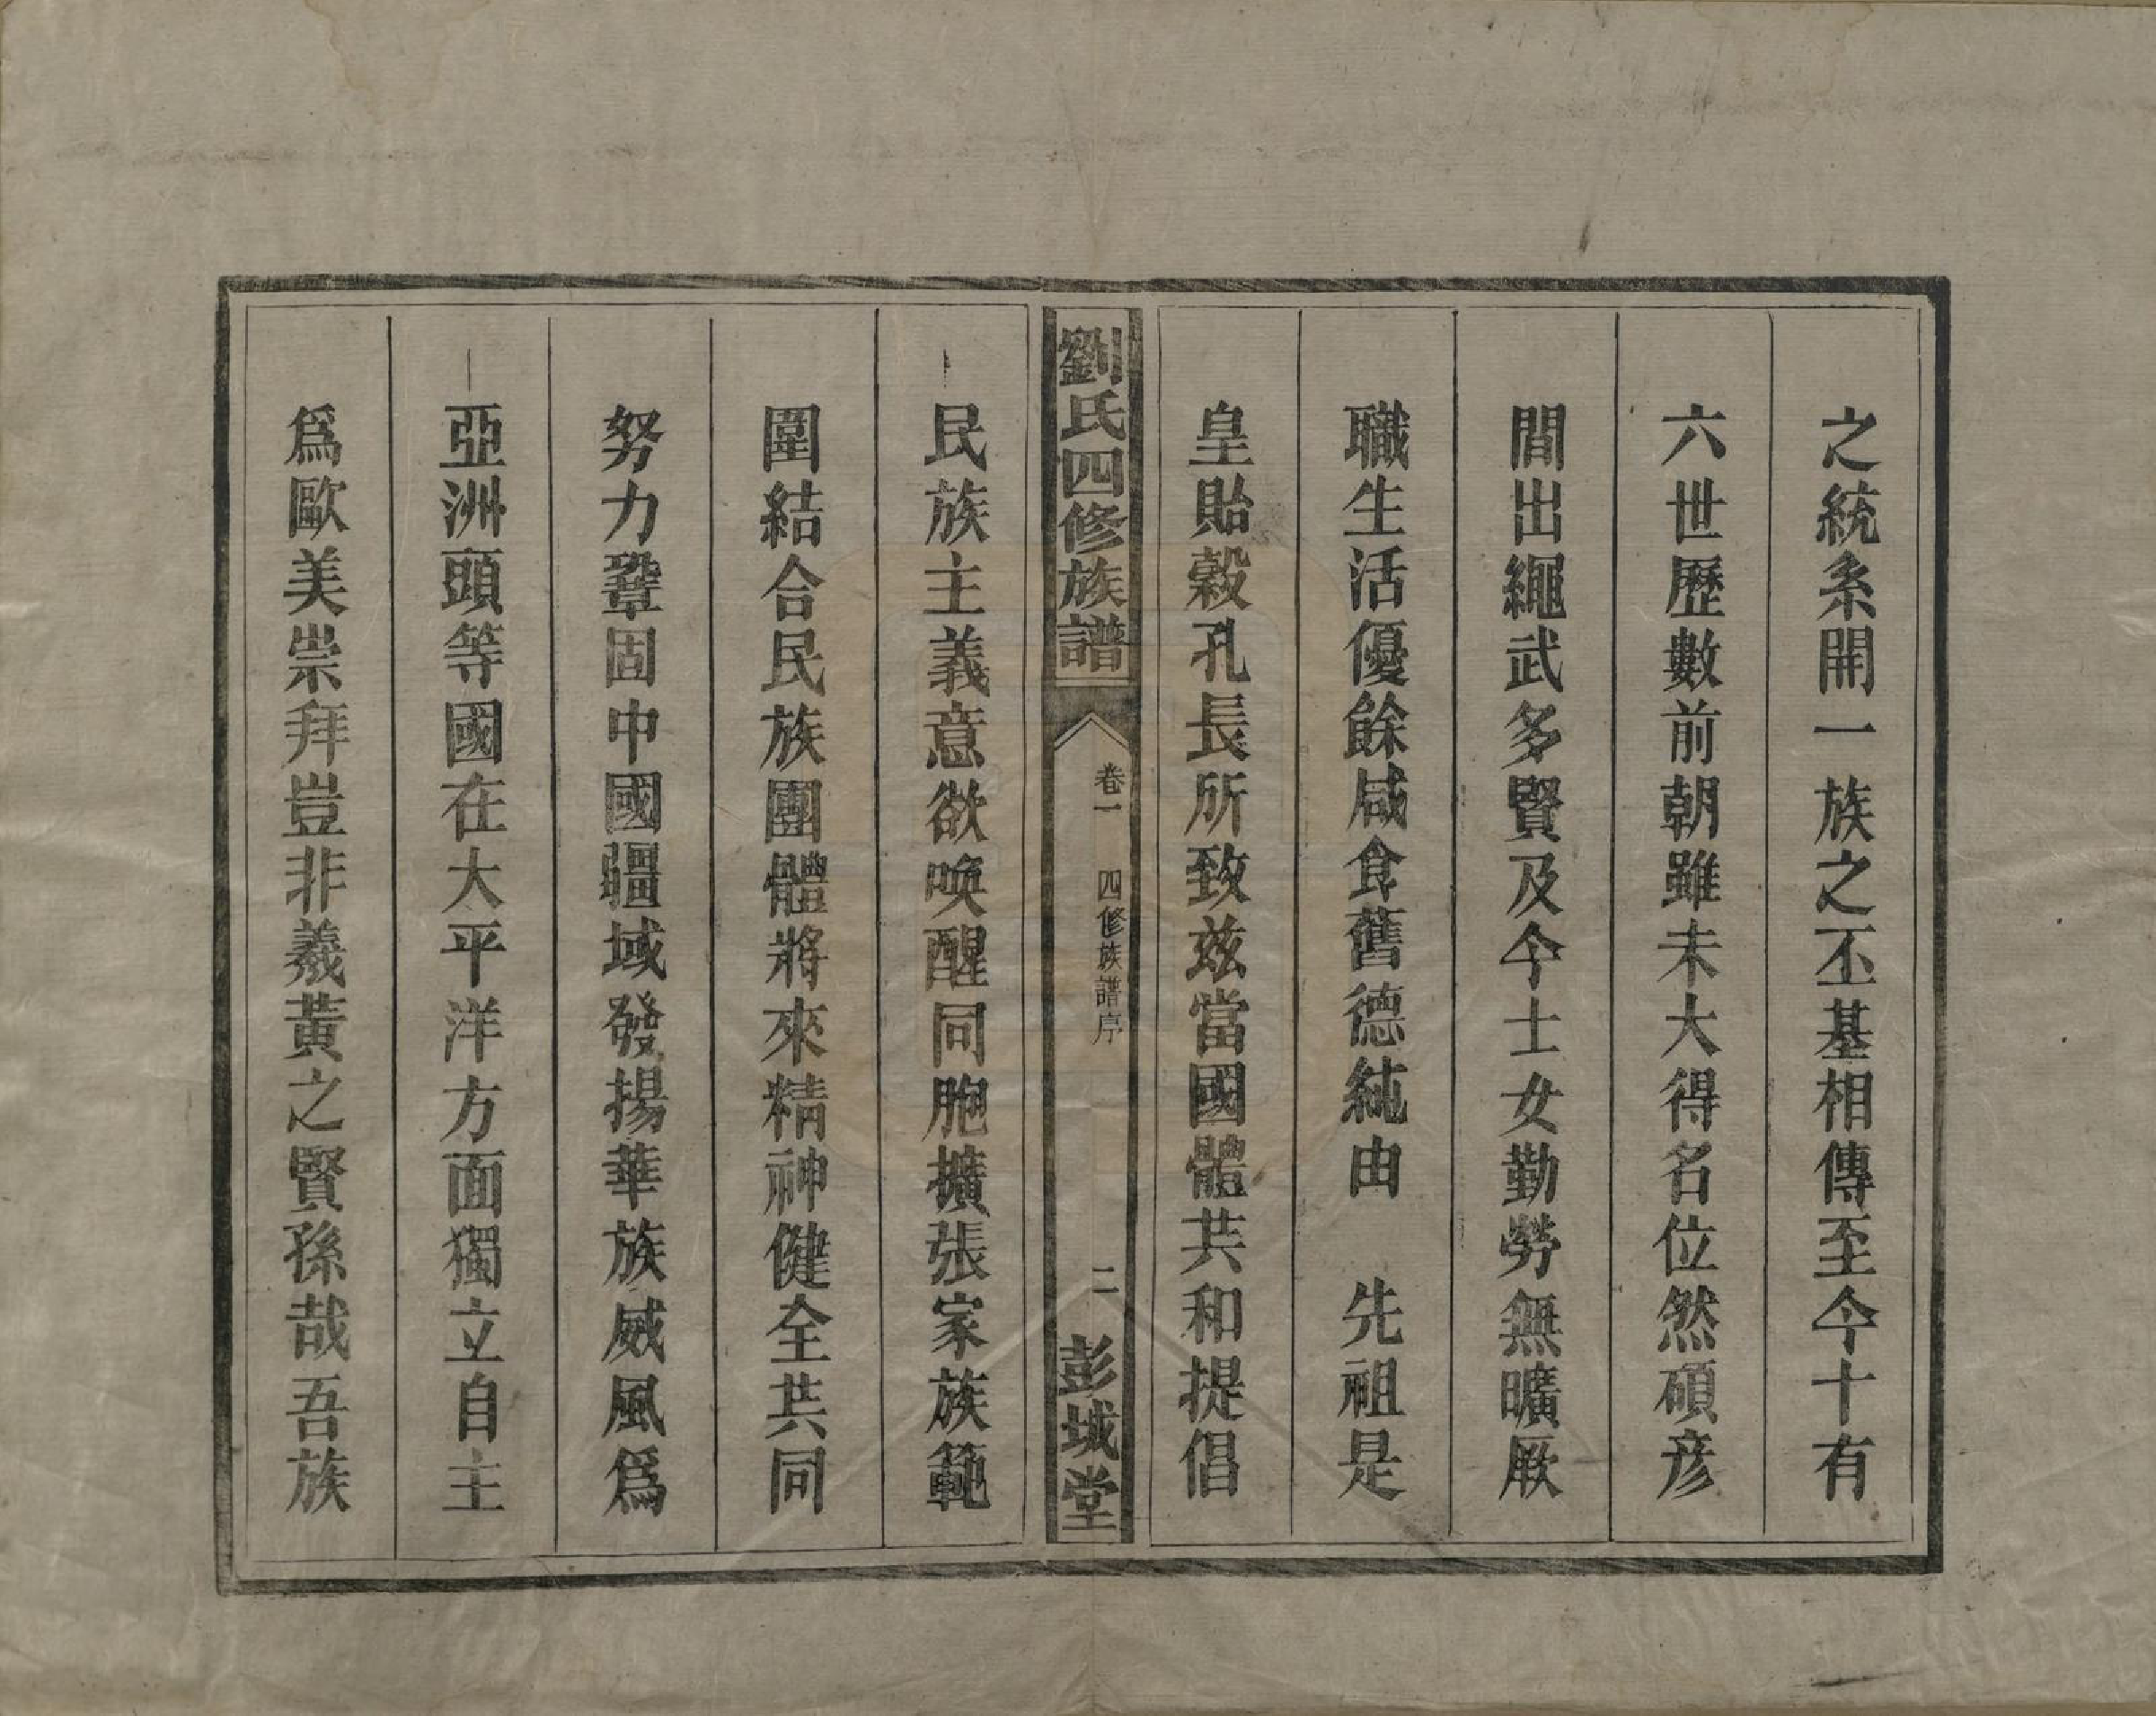 之統系開一族之丕基相傳至今十有
六世歷數前朝雖未大得名位然碩彦
間出繩武多賢及今士女勤勞無曠厥
職生活優餘咸食舊德純由　先祖是
皇貽穀孔長所致兹當國體共和提倡
劉氏四修族譜
卷一　四修族譜序　二
彭城堂
民族主義意欲喚醒同胞擴張家族範
圍結合民族團體將來精神健全共同
努力鞏固中國疆域發揚華族威風爲
亞洲頭等國在大平洋方面獨立自主
爲歐美崇拜豈非羲黃之賢孫哉吾族